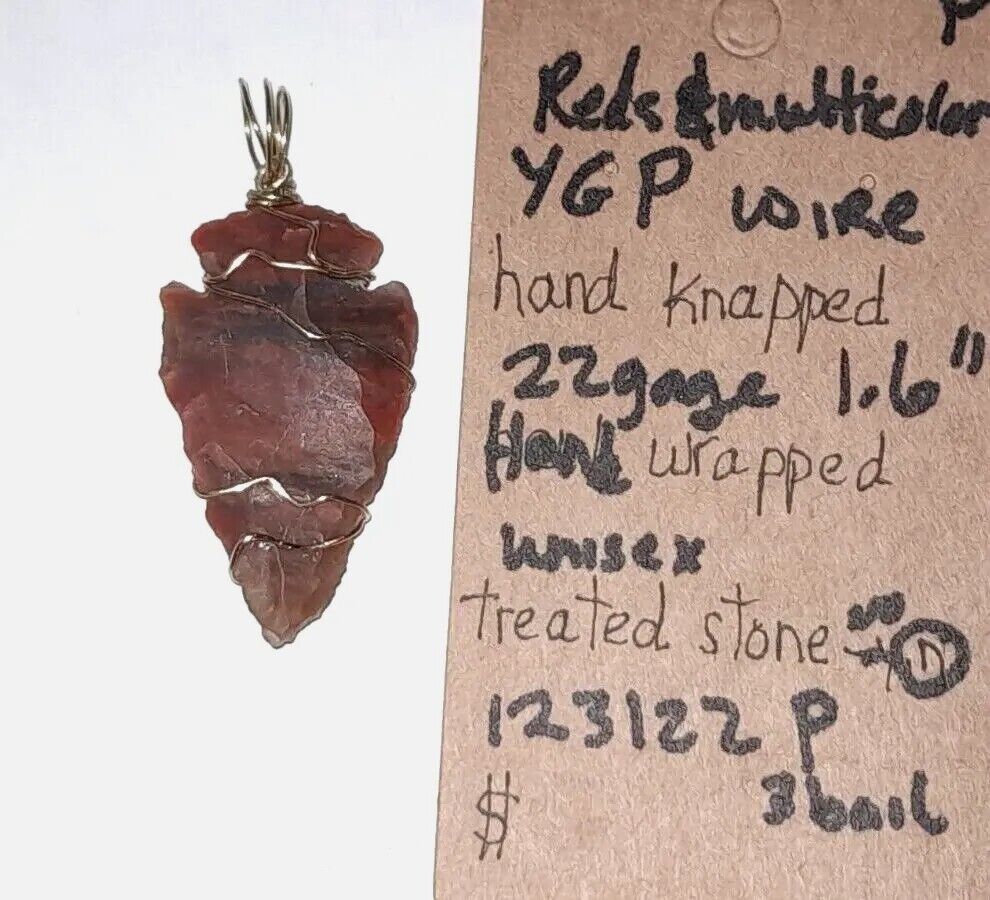 P
Reds & multicolor
YGP wire
hand knapped
22gage 1.6"
Hand wrapped
unisex
treated stone
D
123122 P
3 bail
$